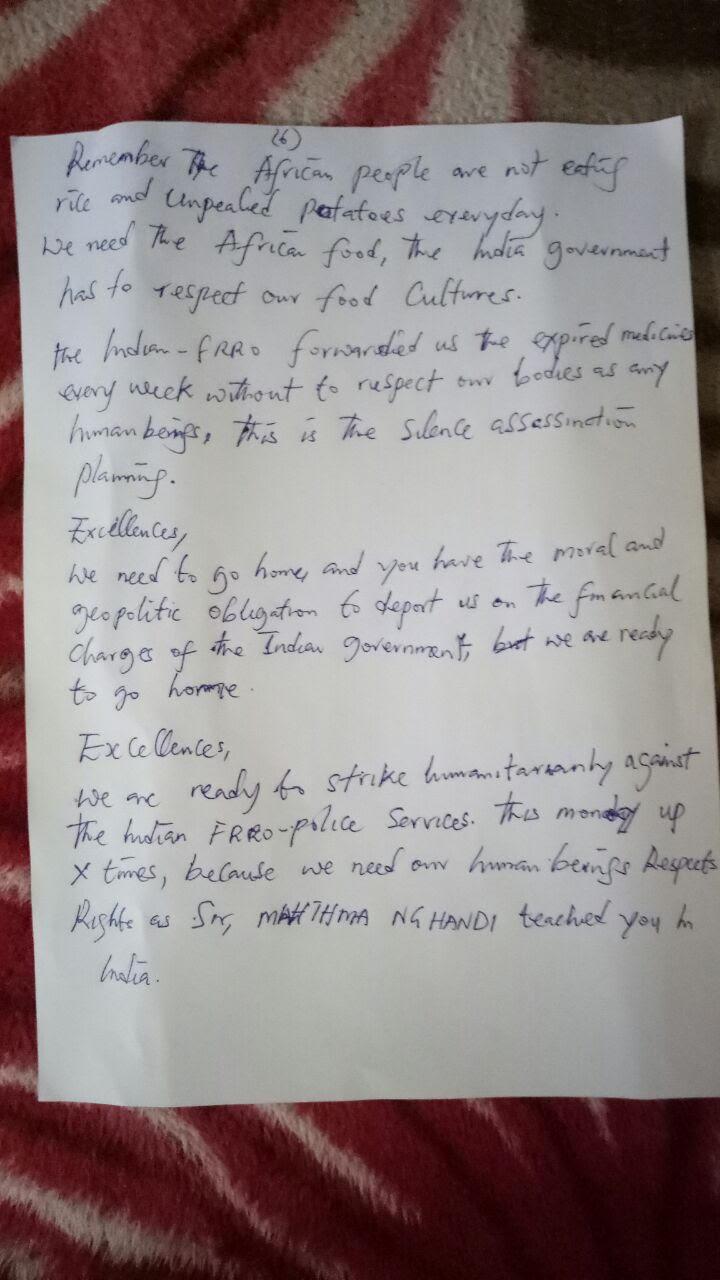 (6)
Remember The African people are not eating
rice and Unpealed Potatoes everyday.
We need The African food, the India government
has to respect our food Cultures.
the Indian-FRRO forwarded us the expired medicines
every week without to respect our bodies as any
human beings, this is the Silence assassination
planning.
Excellences,
We need to go home, and you have the moral and
geopolitic obligation to deport us on the financial
charges of the Indian government, but we are ready
to go home.
Excellences,
We are ready to strike humanitarianly against
The Indian FRRO-police Services. This monday up
X times, because we need our human beings Respects
Rights as Sir, MAHTHMA NGHANDI teached you in
India.